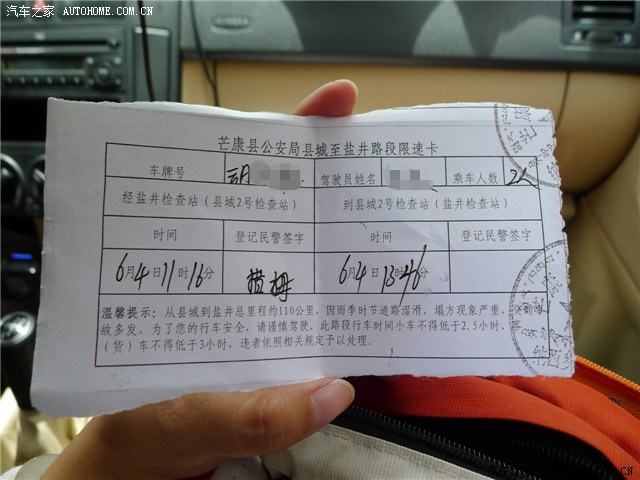 汽车之家 AUTOHOME.COM.CN
芒康县公安局县城至盐井路段限速卡
车牌号 驾驶员姓名 乘车人数 2人
经盐井检查站（县城2号检查站） 到县城2号检查站（盐井检查站）
时间 登记民警签字 时间 登记民警签字
6月4日11时16分 6月4日13时46分
温馨提示：从县城到盐井总里程约110公里，因雨季时节道路湿滑，塌方现象严重，
故多发，为了您的行车安全，请谨慎驾驶，此路段行车时间小车不得低于2.5小时、
（货）车不得低于3小时，违者依照相关规定予以处理。